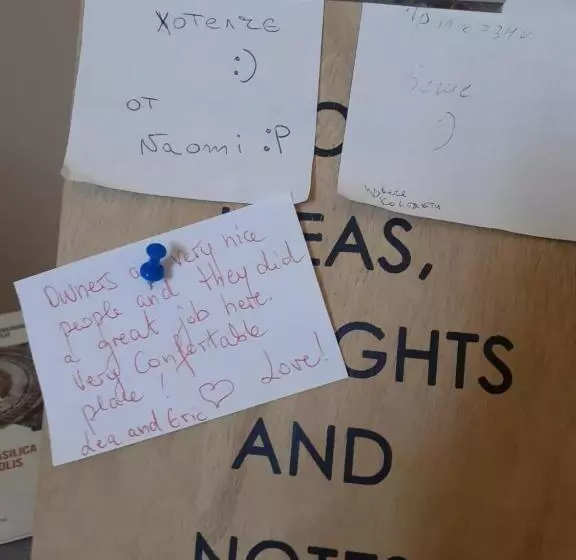 хотелче
:)
от
Naomi :P
:)
EAS,
Owners a very nice
people and they did
a great job here.
Very Confortable
place! ♡ Love!
Lea and Eric
GHTS
AND
NOTES
SILICA
OLIS